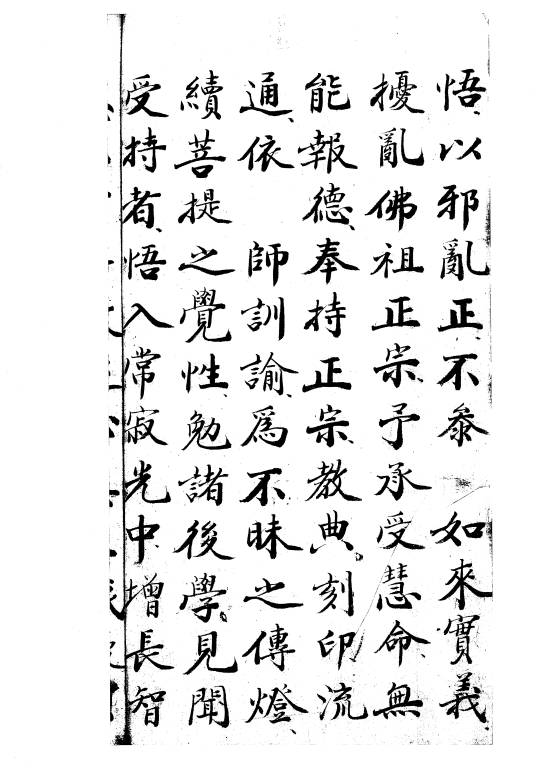 悟、以邪亂正不叅　如來實義、
擾亂佛祖正宗、予承受慧命、無
能報德、奉持正宗、教典。刻印流
通、依　師訓諭、爲不昧之傳燈、
續菩提之覺性、勉諸後學。見聞
受持者、悟入常寂光中、增長智